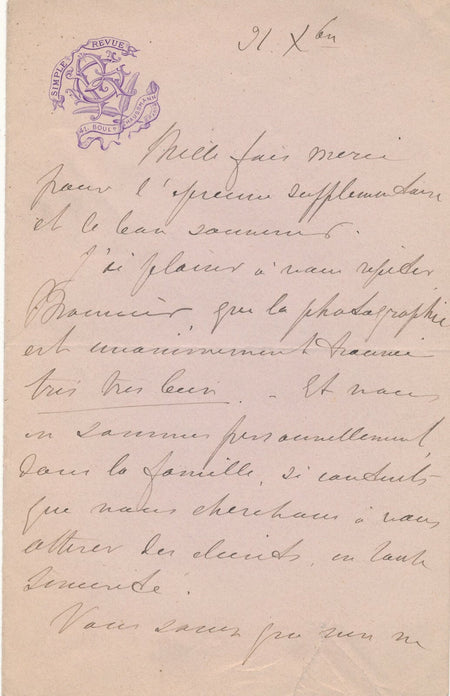 SIMPLE REVUE
BOULD HAUSSMANN
Xbre
Mille fois merci
pour l'épreuve supplémentaire
et le bon souvenir.
J'ai plaisir à vous répéter,
Monsieur que la photographie
est unanimement trouvée
très très bien. - Et nous
en sommes personnellement,
dans la famille, si contents
que nous cherchons à vous
attirer des clients, en toute
sincérité.
Vous savez que rien ne